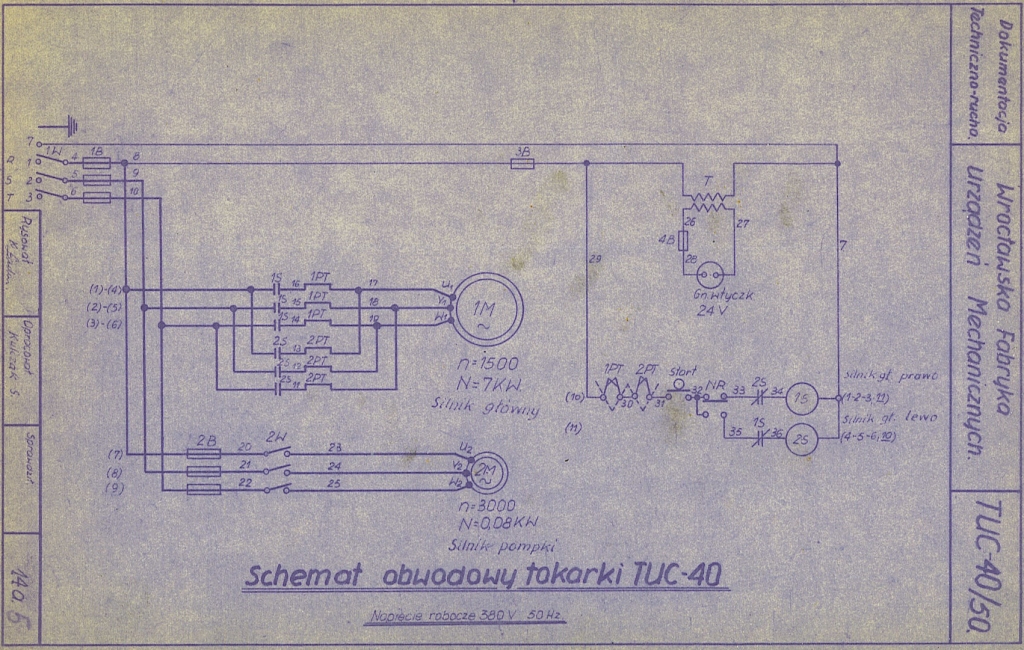 Dokumentacja
Techniczno-rucho.
Wrocławska Fabryka
Urządzeń Mechanicznych.
TUC-40/50.
7
R 1 1W 4 1B 8 3B
S 2 5 9
T 3 6 10
T
26 27
4B
28
Gn. wtyczk
24 V
29
7
(1)-(4) 1S 16 1PT 17 U1
(2)-(5) 1S 15 1PT 18 V1
(3)-(6) 1S 14 1PT 19 W1
2S 13 2PT
2S 12 2PT
2S 11 2PT
1M
~
n=1500
N=7KW
Silnik główny
1PT 2PT Start
(10) 30 31 32 NR 33 2S 34 1S
Silnik gł. prawo
(1-2-3, 11)
(11)
35 1S 36 2S
Silnik gł. lewo
(4-5-6, 12)
(7) 2B 20 2W 23 U2
(8) 21 24 V2
(9) 22 25 W2
2M
~
n=3000
N=0,08KW
Silnik pompki
Schemat obwodowy tokarki TUC-40
Napięcie robocze 380 V 50 Hz
Rysował
Opracował
Kulczak S.
Sprawdził
14a 5